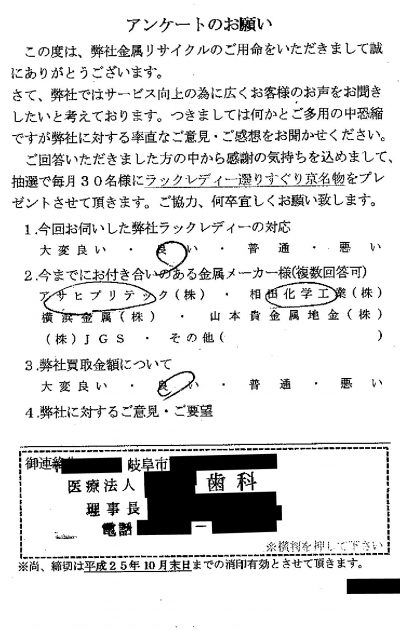 アンケートのお願い
この度は、弊社金属リサイクルのご用命をいただきまして誠
にありがとうございます。
さて、弊社ではサービス向上の為に広くお客様のお声をお聞き
したいと考えております。つきましては何かとご多用の中恐縮
ですが弊社に対する率直なご意見・ご感想をお聞かせください。
ご回答いただきました方の中から感謝の気持ちを込めまして、
抽選で毎月30名様にラックレディー選りすぐり京名物をプレ
ゼントさせて頂きます。ご協力、何卒宜しくお願い致します。
1.今回お伺いした弊社ラックレディーの対応
大変良い ・ 良い ・ 普通 ・ 悪い
2.今までにお付き合いのある金属メーカー様(複数回答可)
アサヒプリテック(株) ・ 相田化学工業(株)
横浜金属(株) ・ 山本貴金属地金(株)
(株)JGS ・ その他( )
3.弊社買取金額について
大変良い ・ 良い ・ 普通 ・ 悪い
4.弊社に対するご意見・ご要望
御連絡 岐阜市
医療法人 歯科
理事長
電話 －
※横判を押して下さい
※尚、締切は平成25年10月末日までの消印有効とさせて頂きます。